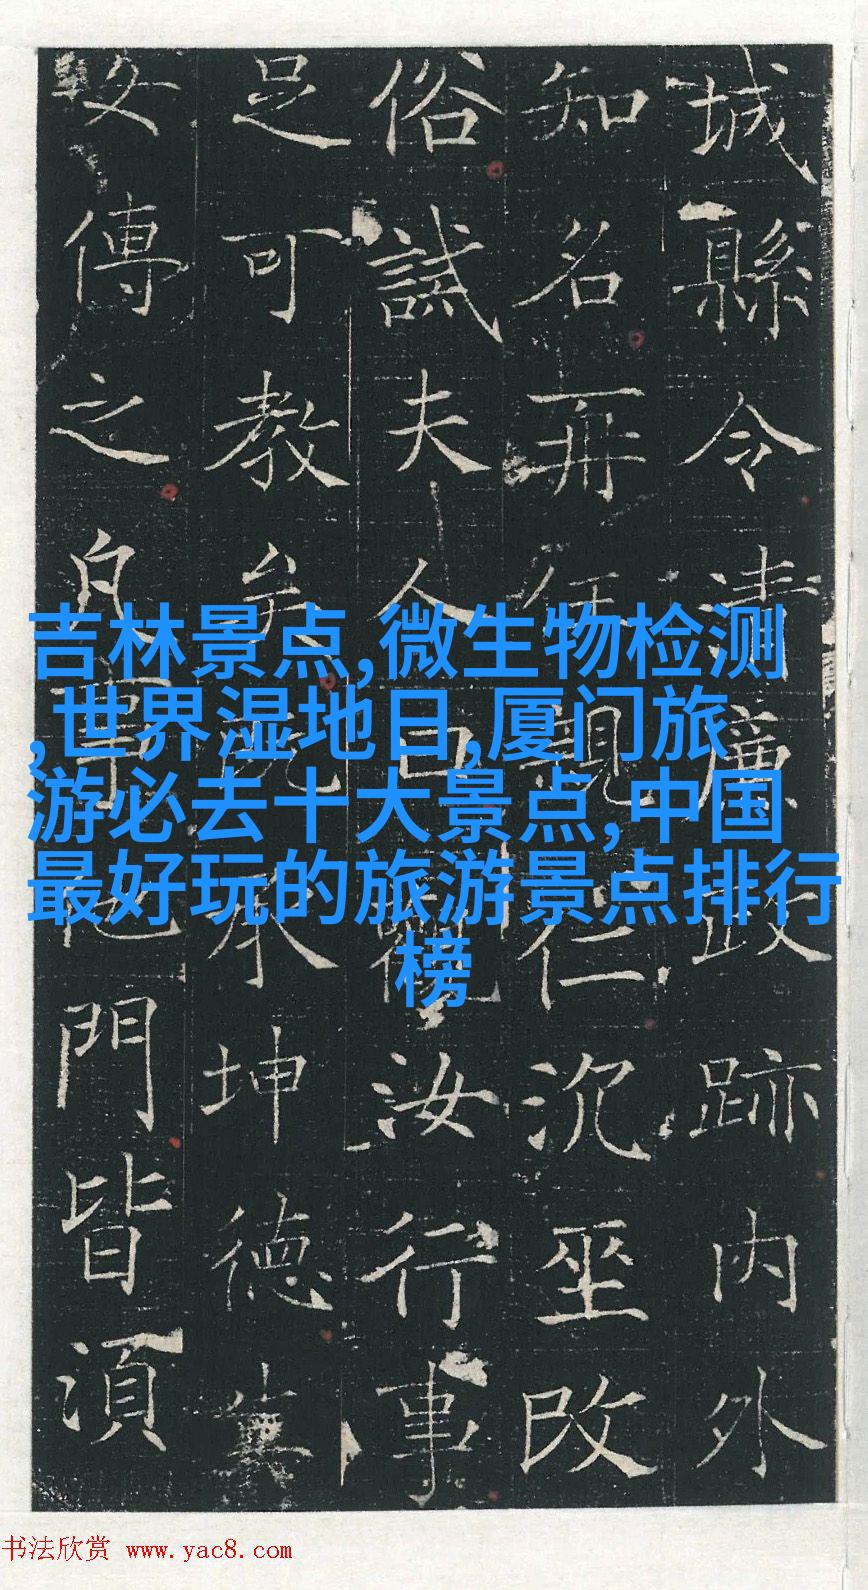 吉林景点,微生物检测
,世界湿地日,厦门旅
游必去十大景点,中国
最好玩的旅游景点排行
榜
城縣令清廉政跡内外
知名再任親仁沉坐改
俗誡夫人曰觀汝行事
足可教矣既承坤德冀
傳之凡事門皆須
书法欣赏 www.yac8.com